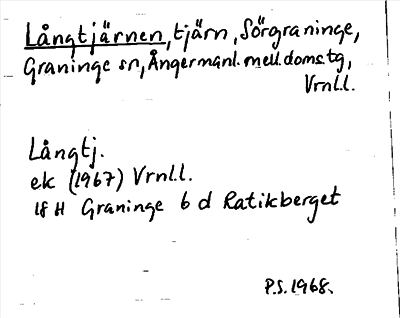 Långtjärnen, tjärn, Sörgraninge,
Graninge sn, Ångermanl. mell. domstg,
Vrnl.l.
Långtj.
ek (1967) Vrnl.l.
18 H Graninge 6 d Ratikberget
P.S. 1968.